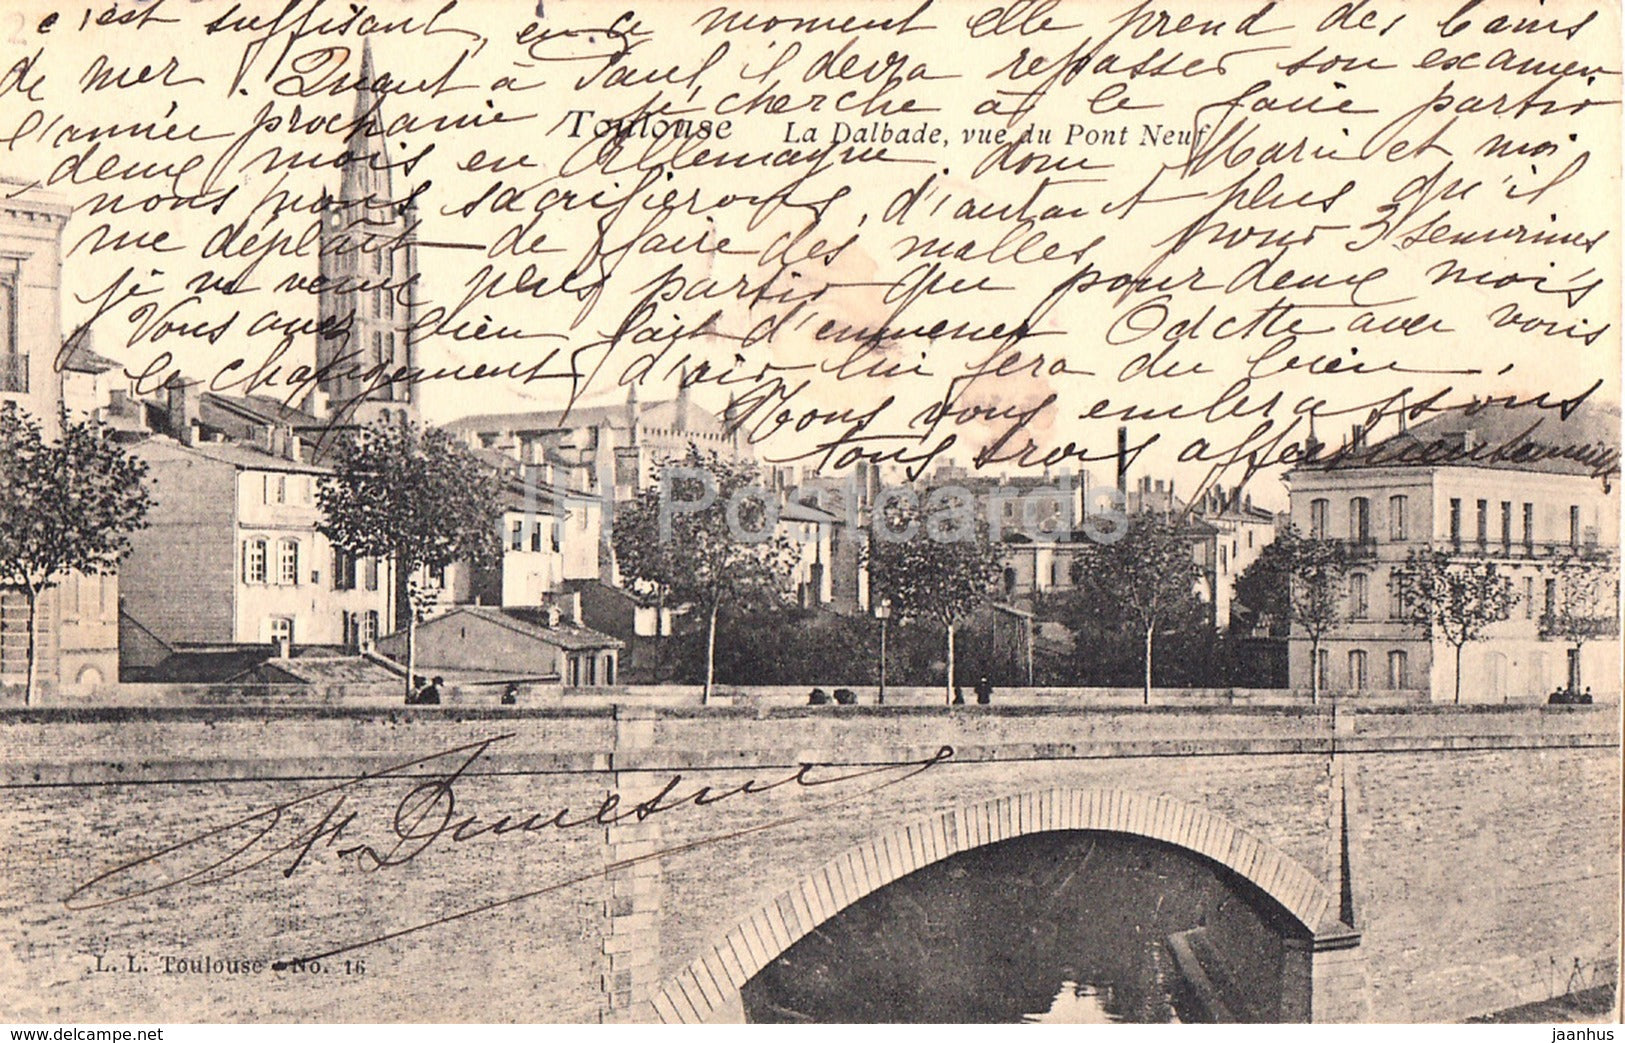 c'est suffisant, en ce moment elle prend des bains
de mer. Quant à Paul, il devra repasser son examen
l'année prochaine je cherche à le faire partir
Toulouse La Dalbade, vue du Pont Neuf
deux mois en Allemagne dont Marie et moi
nous nous sacrifierons, d'autant plus qu'il
me déplait de faire des malles pour 3 semaines
je ne veux plus partir que pour deux mois
Vous avez bien fait d'emmener Odette avec vous
le changement d'air lui fera du bien.
Nous vous embrassons
tous trois affectueusement
JH Postcards
H. Dumesnil
L. L. Toulouse - No. 16
www.delcampe.net
jaanhus